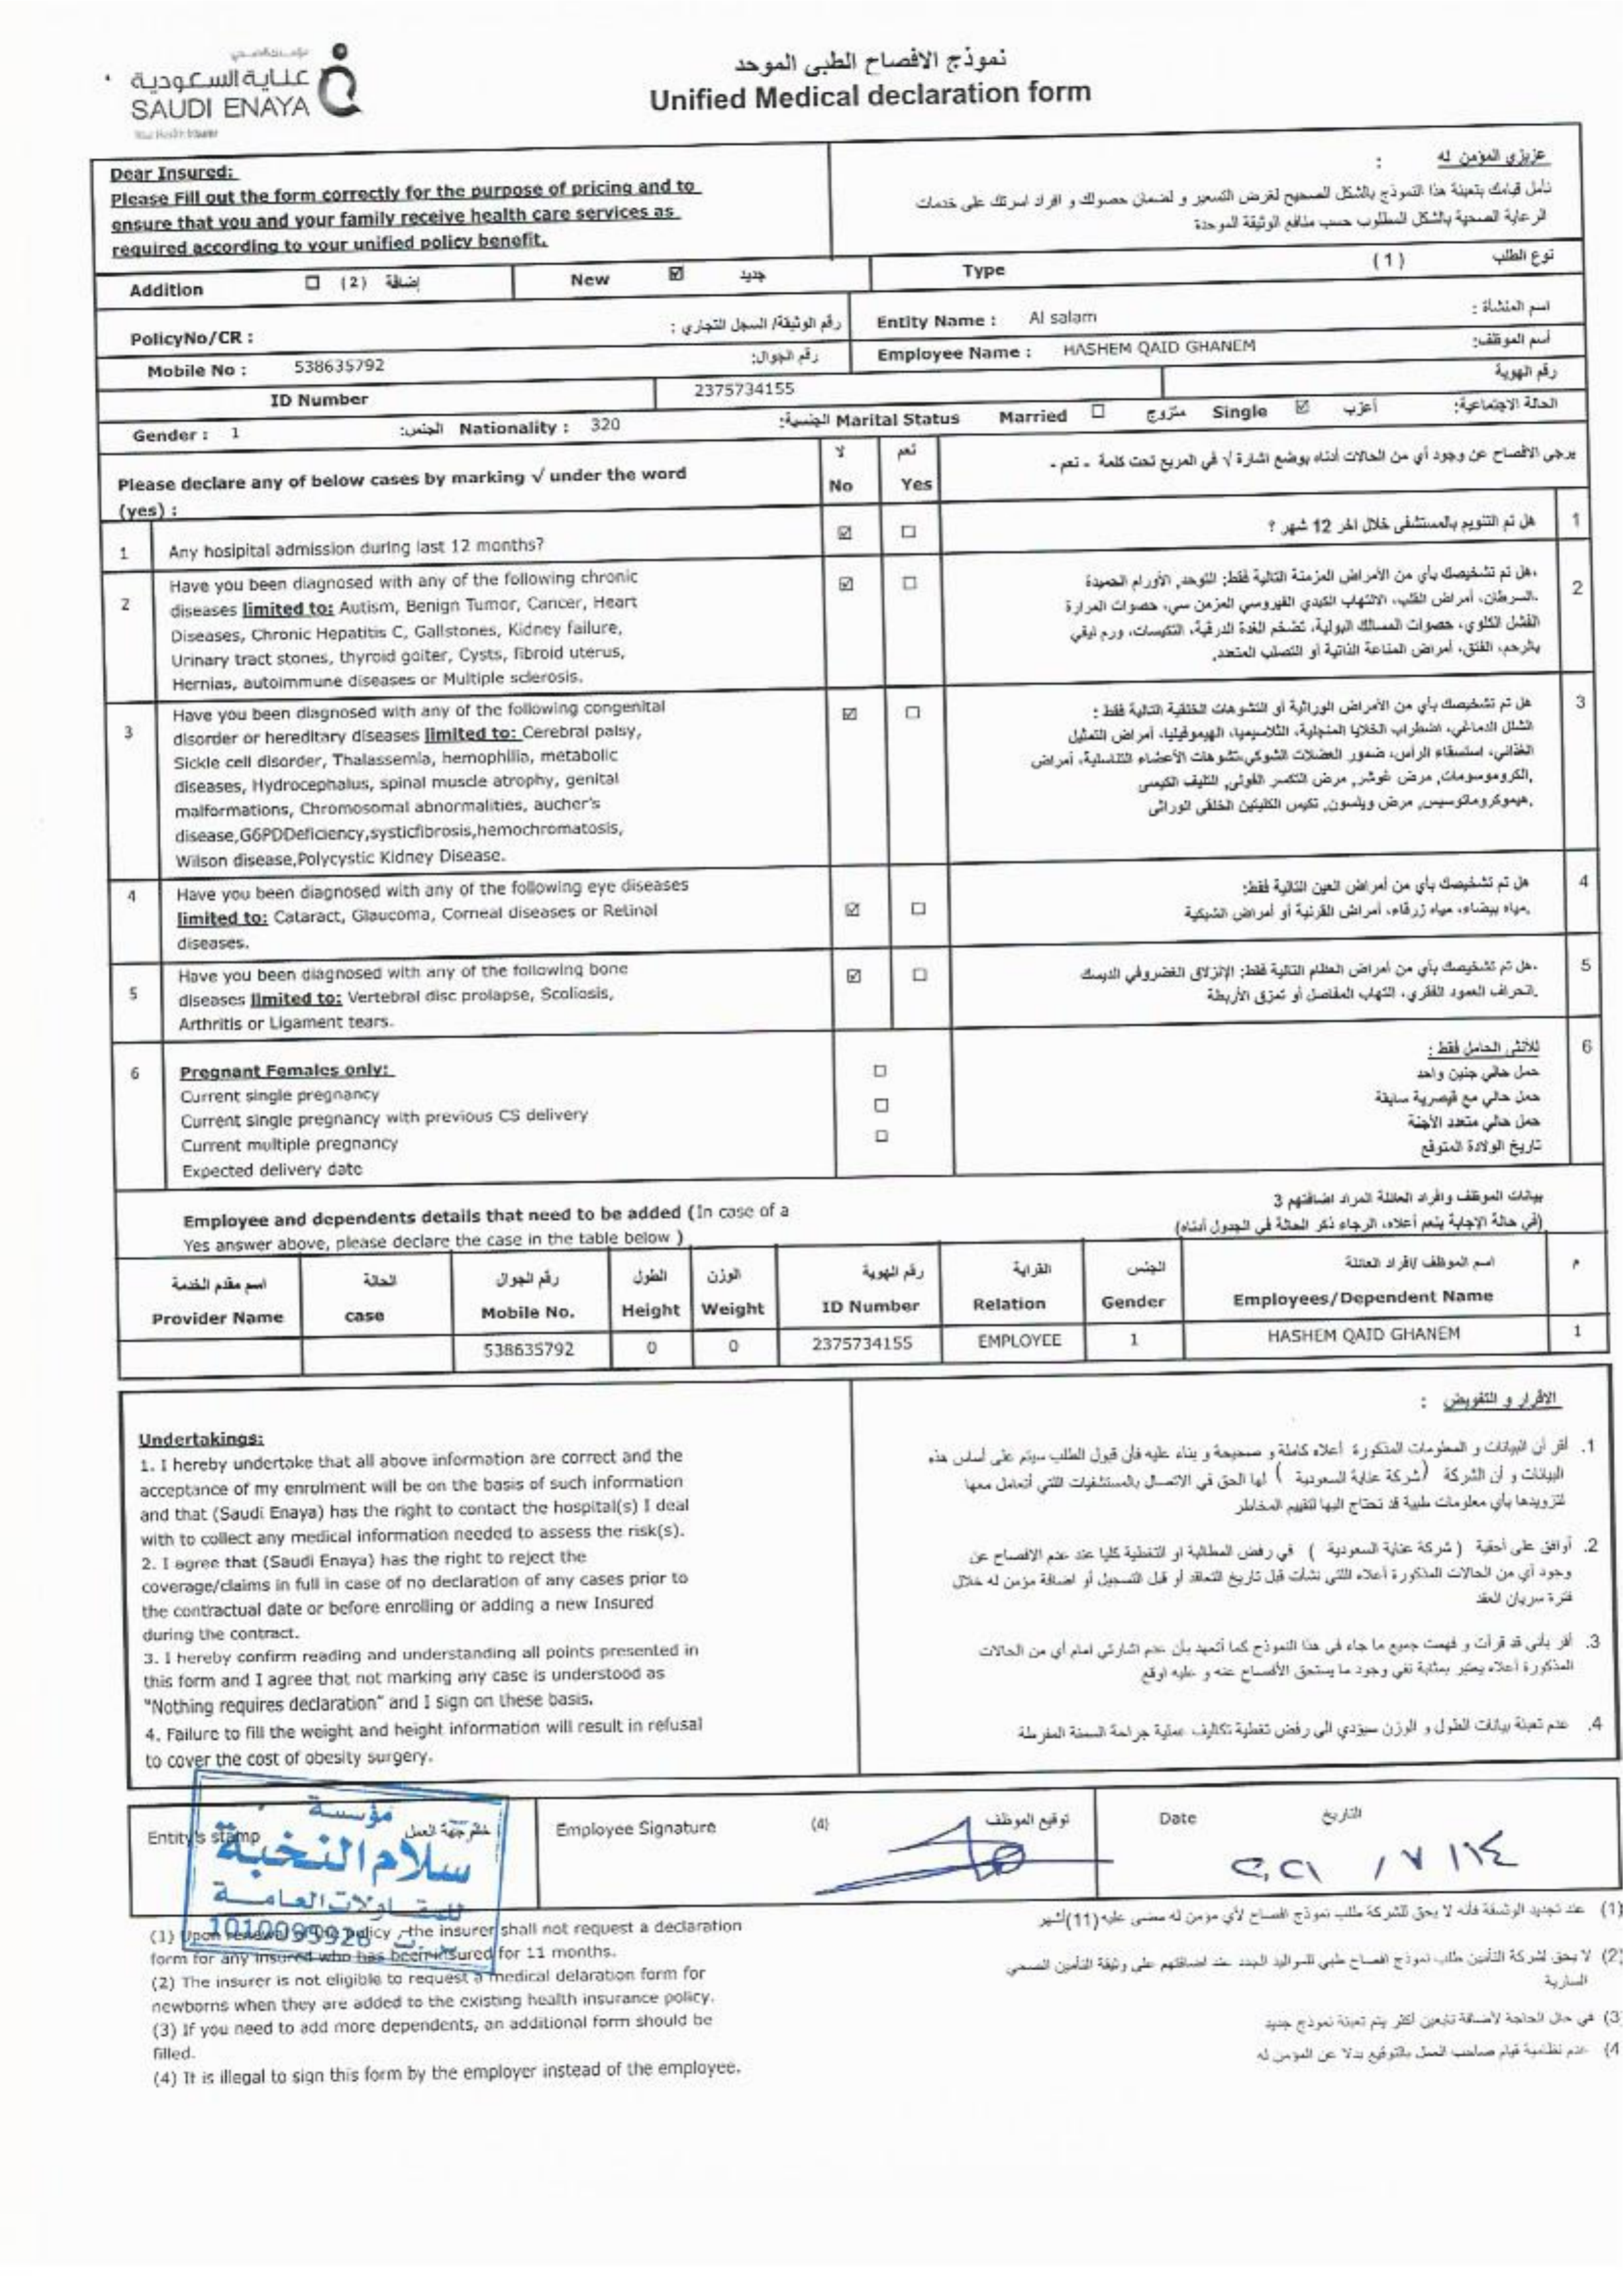 عناية السعودية
SAUDI ENAYA
نموذج الافصاح الطبي الموحد
Unified Medical declaration form
Dear Insured:
Please Fill out the form correctly for the purpose of pricing and to
ensure that you and your family receive health care services as
required according to your unified policy benefit.
عزيزي المؤمن له :
نأمل قيامك بتعبئة هذا النموذج بالشكل الصحيح لغرض التسعير و لضمان حصولك و افراد اسرتك على خدمات
الرعاية الصحية بالشكل المطلوب حسب منافع الوثيقة الموحدة
Addition ☐ (2) إضافة New ☑ جديد Type (1) نوع الطلب
PolicyNo/CR : رقم الوثيقة/ السجل التجاري : Entity Name : Al salam اسم المنشأة :
Mobile No : 538635792 رقم الجوال: Employee Name : HASHEM QAID GHANEM أسم الموظف:
ID Number 2375734155 رقم الهوية
Gender : 1 الجنس: Nationality : 320 الجنسية: Marital Status Married ☐ متزوج Single ☑ أعزب الحالة الاجتماعية:
Please declare any of below cases by marking √ under the word
(yes) :
لا نعم
No Yes
يرجى الافصاح عن وجود أي من الحالات أدناه بوضع اشارة √ في المربع تحت كلمة - نعم -
1 Any hosipital admission during last 12 months? ☑ ☐ هل تم التنويم بالمستشفى خلال اخر 12 شهر ؟ 1
2 Have you been diagnosed with any of the following chronic
diseases limited to: Autism, Benign Tumor, Cancer, Heart
Diseases, Chronic Hepatitis C, Gallstones, Kidney failure,
Urinary tract stones, thyroid goiter, Cysts, fibroid uterus,
Hernias, autoimmune diseases or Multiple sclerosis.
☑ ☐
هل تم تشخيصك بأي من الأمراض المزمنة التالية فقط: التوحد, الأورام الحميدة 2
السرطان، أمراض القلب، الالتهاب الكبدي الفيروسي المزمن سي، حصوات المرارة
الفشل الكلوي، حصوات المسالك البولية، تضخم الغدة الدرقية، التكيسات، ورم ليفي
بالرحم، الفتق، أمراض المناعة الذاتية أو التصلب المتعدد.
3 Have you been diagnosed with any of the following congenital
disorder or hereditary diseases limited to: Cerebral palsy,
Sickle cell disorder, Thalassemia, hemophilia, metabolic
diseases, Hydrocephalus, spinal muscle atrophy, genital
malformations, Chromosomal abnormalities, aucher's
disease,G6PDDeficiency,systicfibrosis,hemochromatosis,
Wilson disease,Polycystic Kidney Disease.
☑ ☐
هل تم تشخيصك بأي من الأمراض الوراثية أو التشوهات الخلقية التالية فقط : 3
الشلل الدماغي، اضطراب الخلايا المنجلية، الثلاسيميا، الهيموفيليا، أمراض التمثيل
الغذائي، استسقاء الرأس، ضمور العضلات الشوكي،تشوهات الأعضاء التناسلية، أمراض
الكروموسومات, مرض غوشر, مرض التكسر الفولي, التليف الكيسي,
هيموكروماتوسيس, مرض ويلسون, تكيس الكليتين الخلقي الوراثي,
4 Have you been diagnosed with any of the following eye diseases
limited to: Cataract, Glaucoma, Corneal diseases or Retinal
diseases.
☑ ☐
هل تم تشخيصك بأي من أمراض العين التالية فقط: 4
مياه بيضاء، مياه زرقاء، أمراض القرنية أو أمراض الشبكية.
5 Have you been diagnosed with any of the following bone
diseases limited to: Vertebral disc prolapse, Scoliosis,
Arthritis or Ligament tears.
☑ ☐
هل تم تشخيصك بأي من أمراض العظام التالية فقط: الإنزلاق الغضروفي الديسك 5
انحراف العمود الفقري، التهاب المفاصل أو تمزق الأربطة.
6 Pregnant Females only:
Current single pregnancy ☐
Current single pregnancy with previous CS delivery ☐
Current multiple pregnancy ☐
Expected delivery date
للأنثى الحامل فقط : 6
حمل حالي جنين واحد
حمل حالي مع قيصرية سابقة
حمل حالي متعدد الأجنة
تاريخ الولادة المتوقع
Employee and dependents details that need to be added (In case of a
Yes answer above, please declare the case in the table below )
بيانات الموظف وافراد العائلة المراد اضافتهم 3
(في حالة الإجابة بنعم أعلاه، الرجاء ذكر الحالة في الجدول أدناه)
اسم مقدم الخدمة الحالة رقم الجوال الطول الوزن رقم الهوية القرابة الجنس اسم الموظف /افراد العائلة م
Provider Name case Mobile No. Height Weight ID Number Relation Gender Employees/Dependent Name
538635792 0 0 2375734155 EMPLOYEE 1 HASHEM QAID GHANEM 1
Undertakings:
1. I hereby undertake that all above information are correct and the
acceptance of my enrolment will be on the basis of such information
and that (Saudi Enaya) has the right to contact the hospital(s) I deal
with to collect any medical information needed to assess the risk(s).
2. I agree that (Saudi Enaya) has the right to reject the
coverage/claims in full in case of no declaration of any cases prior to
the contractual date or before enrolling or adding a new Insured
during the contract.
3. I hereby confirm reading and understanding all points presented in
this form and I agree that not marking any case is understood as
"Nothing requires declaration" and I sign on these basis.
4. Failure to fill the weight and height information will result in refusal
to cover the cost of obesity surgery.
الاقرار و التفويض :
1. أقر أن البيانات و المعلومات المذكورة أعلاه كاملة و صحيحة و بناء عليه فأن قبول الطلب سيتم على أساس هذه
البيانات و أن الشركة (شركة عناية السعودية ) لها الحق في الاتصال بالمستشفيات اللتي أتعامل معها
لتزويدها بأي معلومات طبية قد تحتاج اليها لتقييم المخاطر
2. أوافق على أحقية ( شركة عناية السعودية ) في رفض المطالبة او التغطية كليا عند عدم الافصاح عن
وجود أي من الحالات المذكورة أعلاه اللتي نشأت قبل تاريخ التعاقد أو قبل التسجيل أو اضافة مؤمن له خلال
فترة سريان العقد
3. أقر بأني قد قرأت و فهمت جميع ما جاء في هذا النموذج كما أتعهد بأن عدم اشارتي امام أي من الحالات
المذكورة أعلاه يعتبر بمثابة نفي وجود ما يستحق الأفصاح عنه و عليه اوقع
4. عدم تعبئة بيانات الطول و الوزن سيؤدي الى رفض تغطية تكاليف عملية جراحة السمنة المفرطة
Entity's stamp ختم جهة العمل Employee Signature (4) توقيع الموظف Date التاريخ
مؤسسة
سلام النخبة
للمقاولات العامة
1010099926
٢٠٢١ / ٧ / ١٤
(1) Upon renewal of the policy ,the insurer shall not request a declaration
form for any insured who has been insured for 11 months.
(2) The insurer is not eligible to request a medical delaration form for
newborns when they are added to the existing health insurance policy.
(3) If you need to add more dependents, an additional form should be
filled.
(4) It is illegal to sign this form by the employer instead of the employee.
(1) عند تجديد الوثيقة فأنه لا يحق للشركة طلب نموذج افصاح لأي مؤمن له مضى عليه (11) أشهر
(2) لا يحق لشركة التأمين طلب نموذج افصاح طبي للمواليد الجدد عند اضافتهم على وثيقة التأمين الصحي
السارية
(3) في حال الحاجة لأضافة تابعين أكثر يتم تعبئة نموذج جديد
(4) عدم نظامية قيام صاحب العمل بالتوقيع بدلا عن المؤمن له